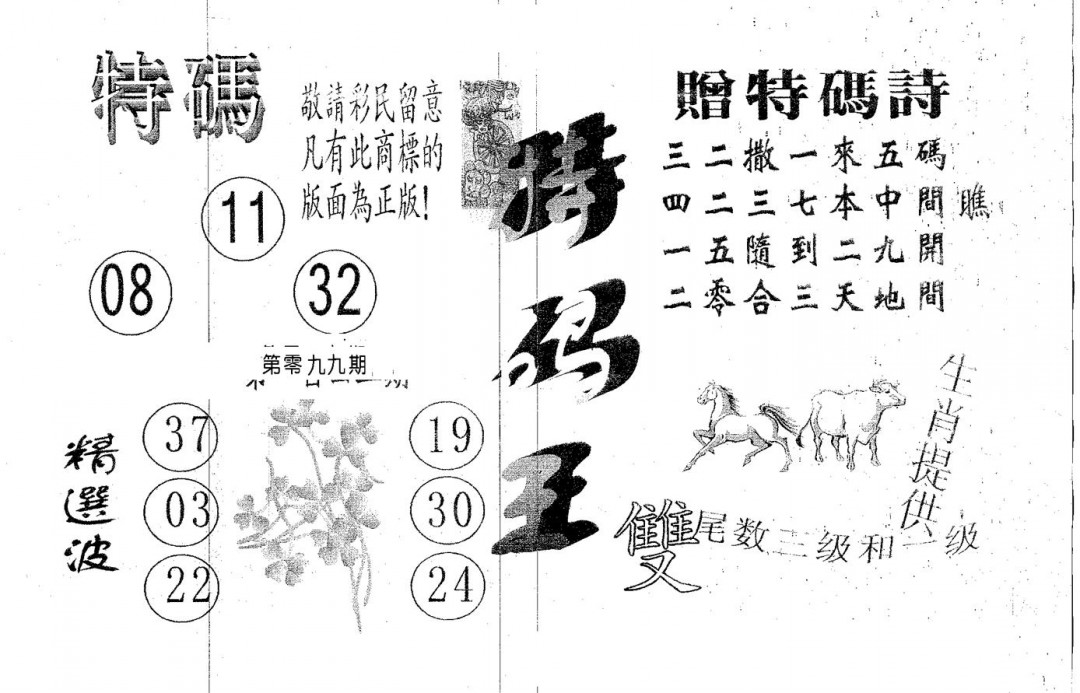 特碼
敬請彩民留意
凡有此商標的
版面為正版!
11
08
32
第零九九期
精選波
37
03
22
19
30
24
特码王
贈特碼詩
三二撒一來五碼
四二三七本中間瞧
一五隨到二九開
二零合三天地間
生肖提供
雙尾数二级和一级